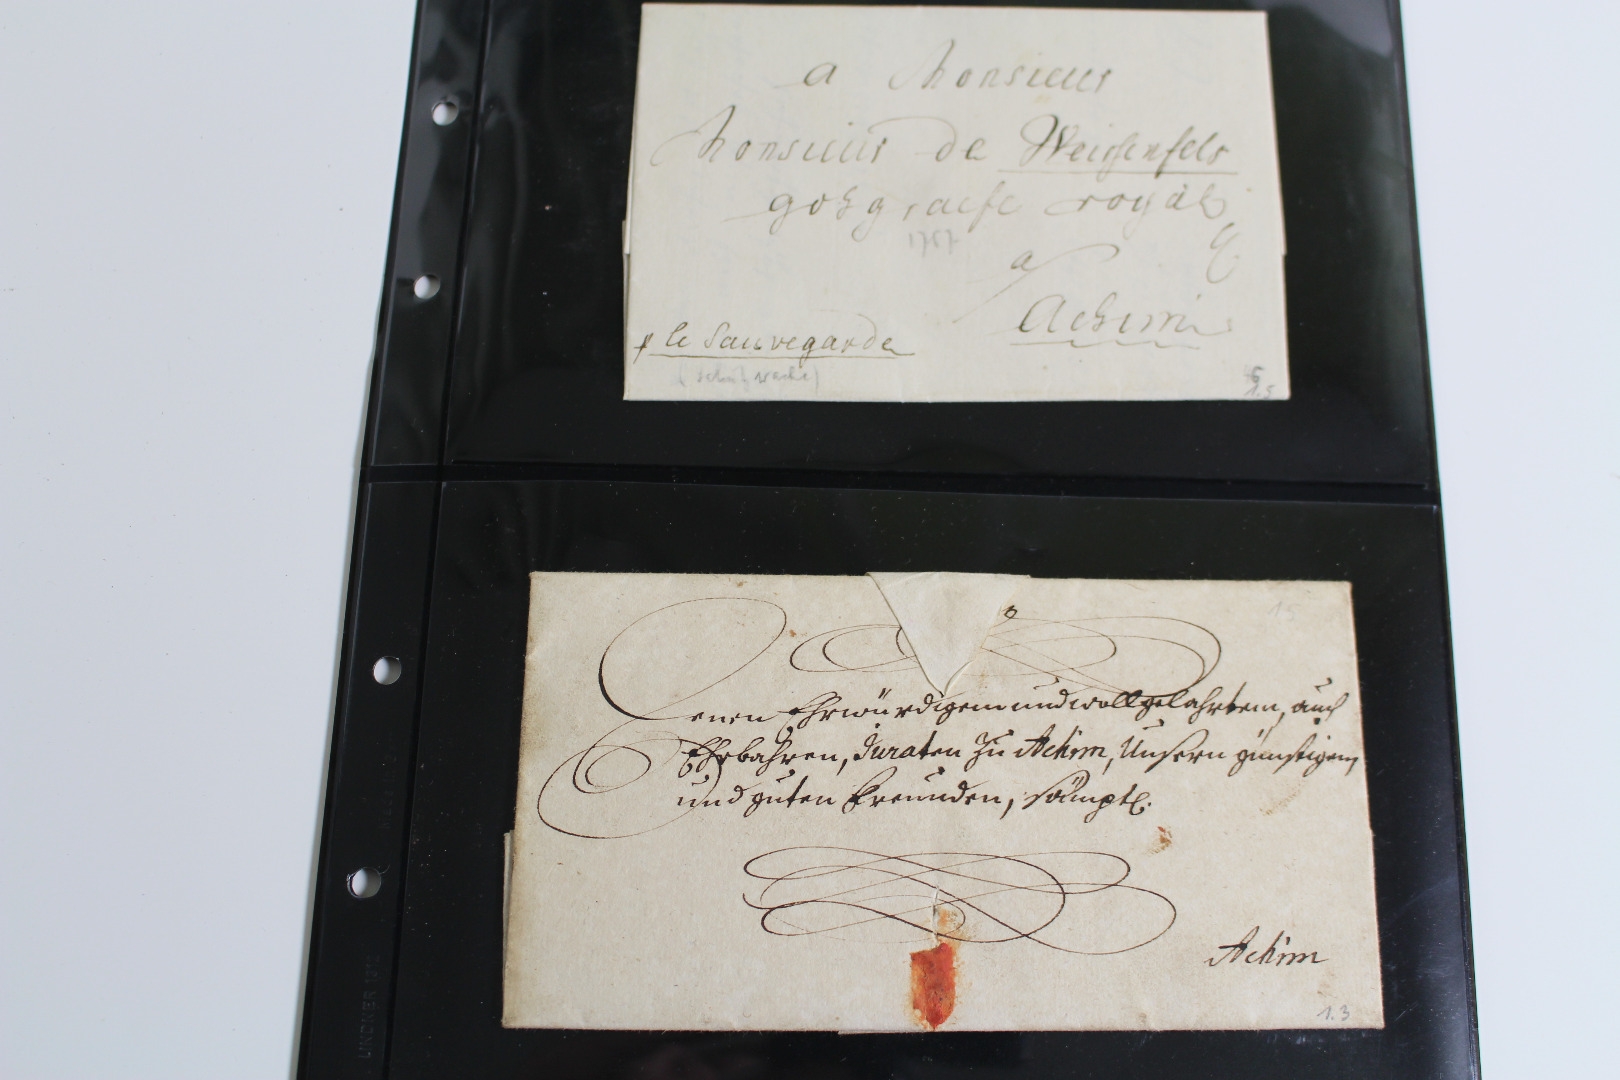 a Monsieur
Monsieur de Weissenfels
gohgraefe royal
1757
a
Achim
p le Sauvegarde
(Schutzwache)
1.5
15
enen Ehrwürdigem und wollgelahrtem, auch
Ehrbahren, Juraten zu Achim, Unsern günstigem
und guten Freunden, sämptl.
Achim
1.3
LINDNER